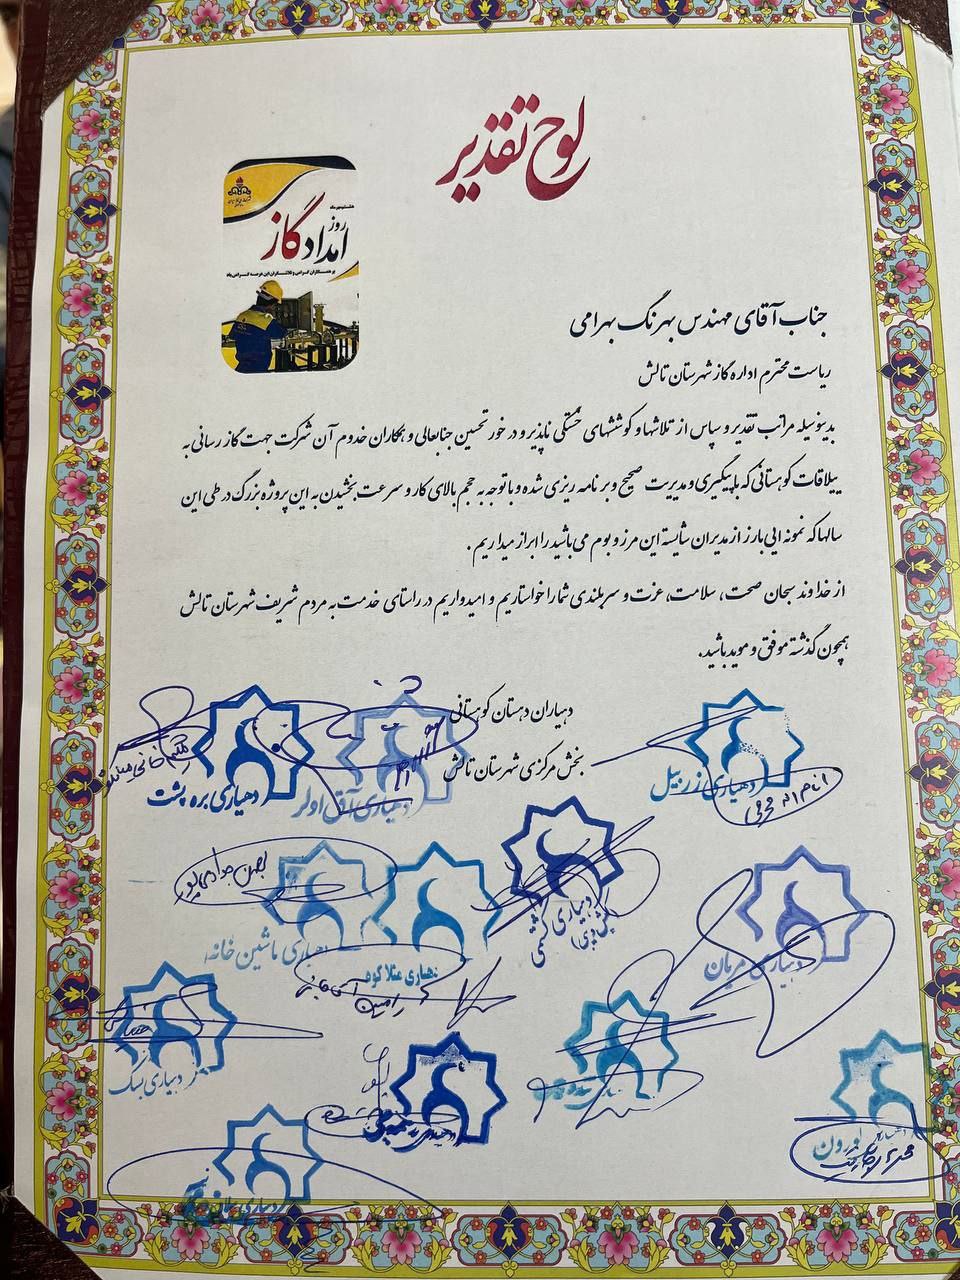 لوح تقدیر
هشتم مهرماه
روز
امداد گاز
جناب آقای مهندس بهرنگ بهرامی
ریاست محترم اداره گاز شهرستان تالش
بدینوسیله مراتب تقدیر و سپاس از تلاشها و کوششهای خستگی ناپذیر و در خور تحسین جنابعالی و همکاران خدوم آن شرکت جهت گاز رسانی به
ییلاقات کوهستانی که با پیگیری و مدیریت صحیح و برنامه ریزی شده و با توجه به حجم بالای کار و سرعت بخشیدن به این پروژه بزرگ در طی این
سالها که نمونه ایی بارز از مدیران شایسته این مرز و بوم می باشید را ابراز میداریم .
از خداوند سبحان صحت، سلامت، عزت و سربلندی شما را خواستاریم و امیدواریم در راستای خدمت به مردم شریف شهرستان تالش
همچون گذشته موفق و موید باشید.
دهیاران دهستان کوهستانی
بخش مرکزی شهرستان تالش
دهیاری زربیل
دهیاری آق اولر
دهیاری بره پشت
دهیاری کیشمی
بهمن جوادی پور
دهیاری ماشین خانه
دهیاری مریان
رامین
دهیاری بسک
دهیاری
اورون